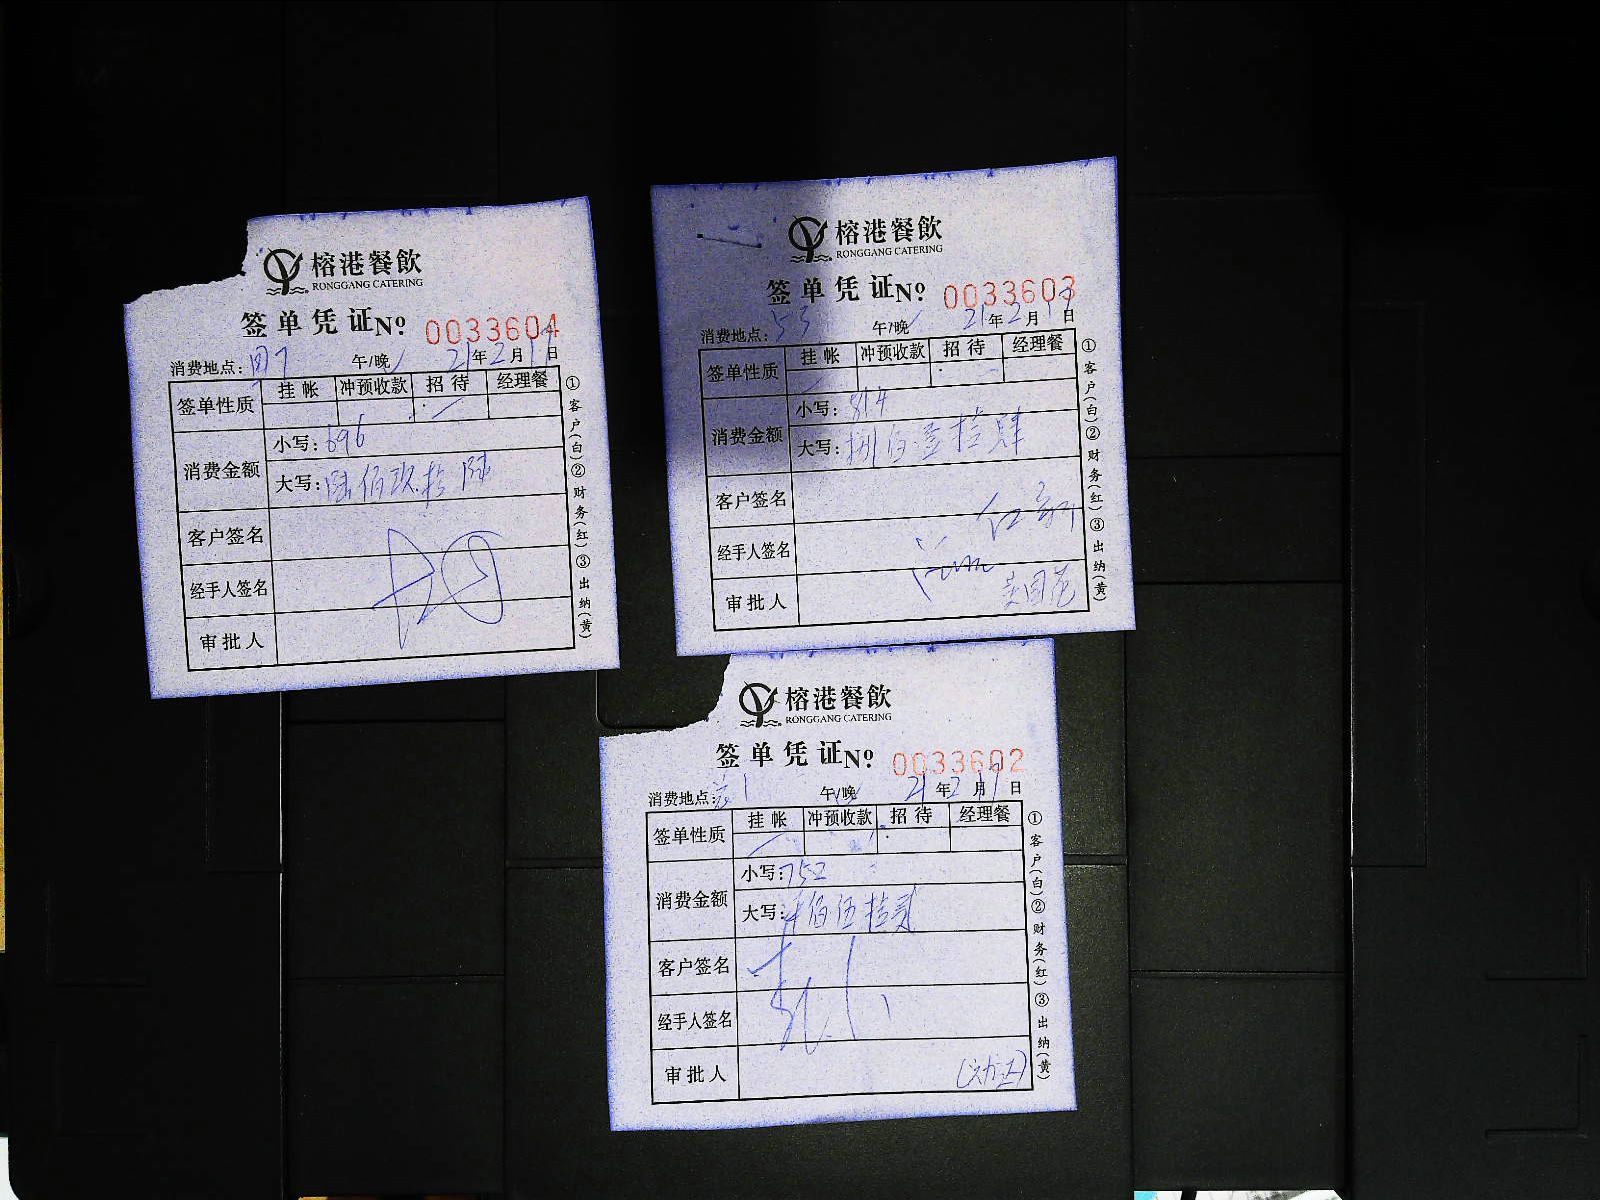 榕港餐飲
RONGGANG CATERING
签单凭证 Nº 0033604
消费地点: 午/晚 21年2月17日
签单性质 挂帐 冲预收款 招待 经理餐
消费金额 小写: 696
大写: 陆佰玖拾陆
客户签名
经手人签名
审批人
①客户(白)②财务(红)③出纳(黄)
榕港餐飲
RONGGANG CATERING
签单凭证 Nº 0033603
消费地点: 53 午/晚 21年2月17日
签单性质 挂帐 冲预收款 招待 经理餐
消费金额 小写: 814
大写: 捌佰壹拾肆
客户签名
经手人签名
审批人
①客户(白)②财务(红)③出纳(黄)
榕港餐飲
RONGGANG CATERING
签单凭证 Nº 0033602
消费地点: 午/晚 21年2月17日
签单性质 挂帐 冲预收款 招待 经理餐
消费金额 小写: 752
大写: 柒佰伍拾贰
客户签名
经手人签名
审批人
①客户(白)②财务(红)③出纳(黄)